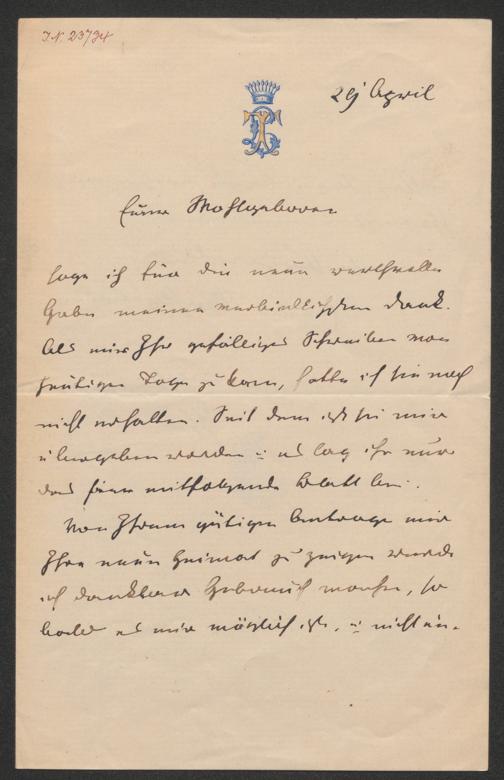 I.N. 23734
29 April
Euer Wohlgeboren
sage ich für die neue werthvolle
Gabe meinen verbindlichsten Dank.
Als mir Ihr gefälliges Schreiben vom
heutigen Tage zukam, hatte ich sie noch
nicht erhalten. Seit dem ist sie mir
übergeben worden u es lag ihr nur
das hier mitfolgende Blatt bei.
Von Ihrem gütigen Antrage mir
Ihre neue Heimat zu zeigen werde
ich dankbar Gebrauch machen, so
bald es mir möglich ist, u nicht un-